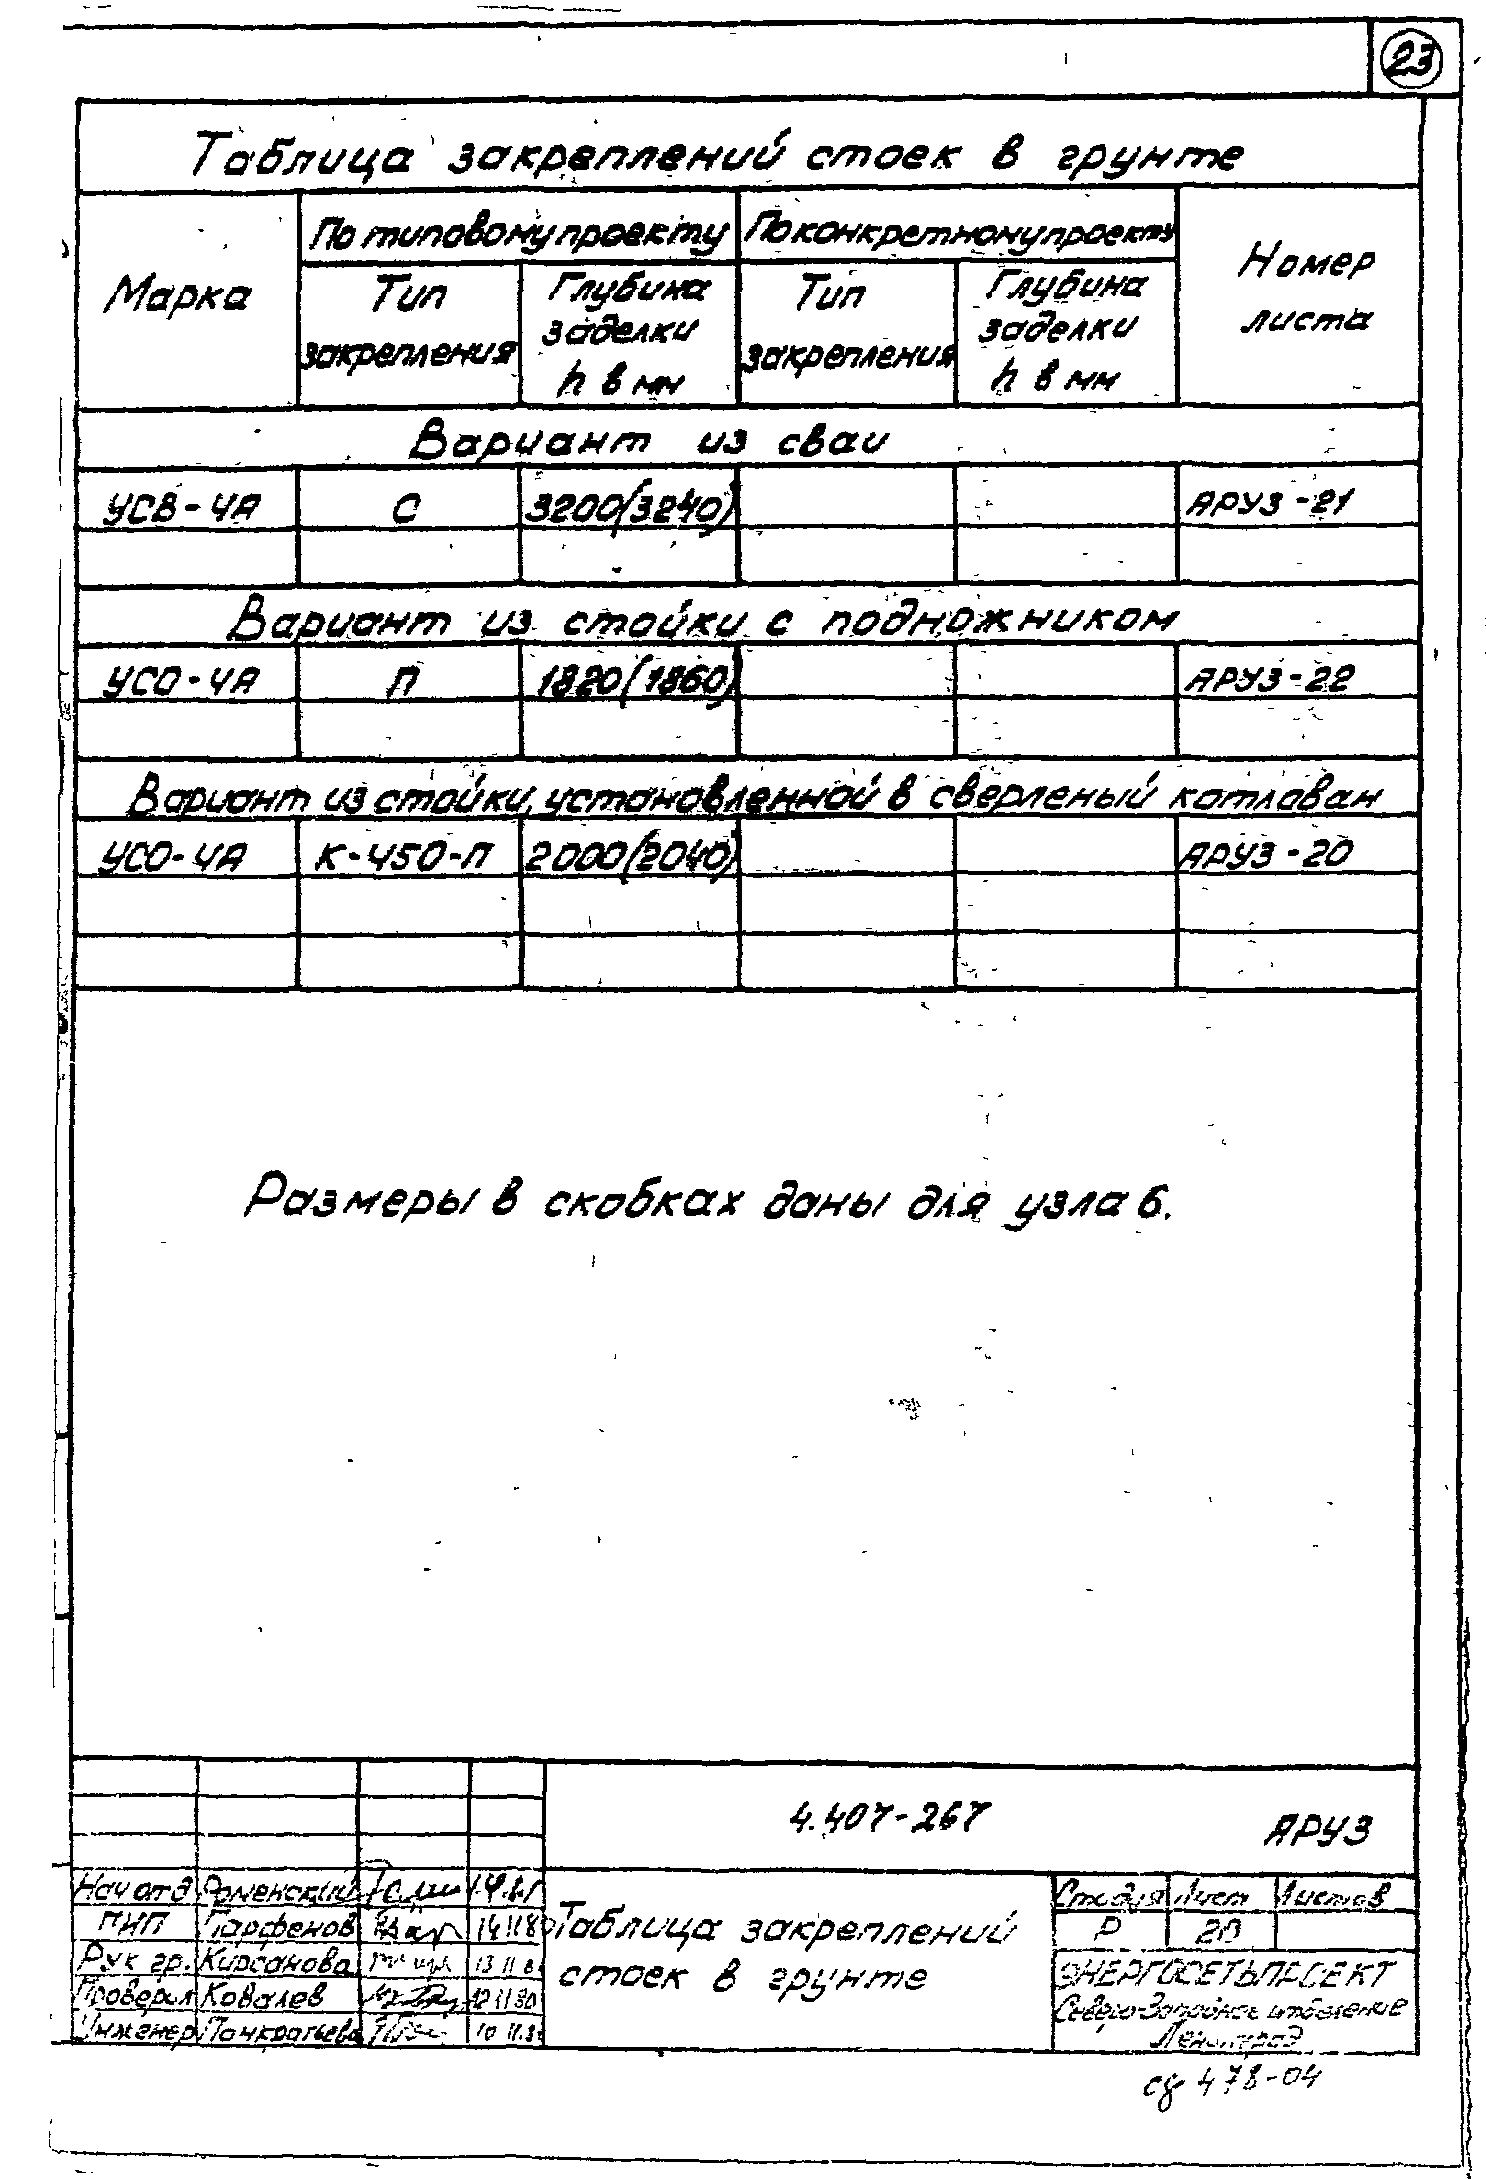 23
Таблица закреплений стоек в грунте
Марка
По типовому проекту
По конкретному проекту
Номер листа
Тип закрепления
Глубина заделки h в мм
Тип закрепления
Глубина заделки h в мм
Вариант из сваи
УСВ-4А С 3200(3240) АРУЗ-21
Вариант из стойки с подножником
УСО-4А П 1820(1860) АРУЗ-22
Вариант из стойки, установленной в сверленый котлован
УСО-4А К-450-П 2000(2040) АРУЗ-20
Размеры в скобках даны для узла 6.
4.407-267 АРУЗ
Нач отд Роменский
ГИП Парфенов
Рук гр. Кирсанова
Проверил Ковалев 12 11 80
Инженер Панкратьева
Таблица закреплений
стоек в грунте
Стадия Лист Листов
Р 20
ЭНЕРГОСЕТЬПРОЕКТ
Северо-Западное отделение
Ленинград
478-04